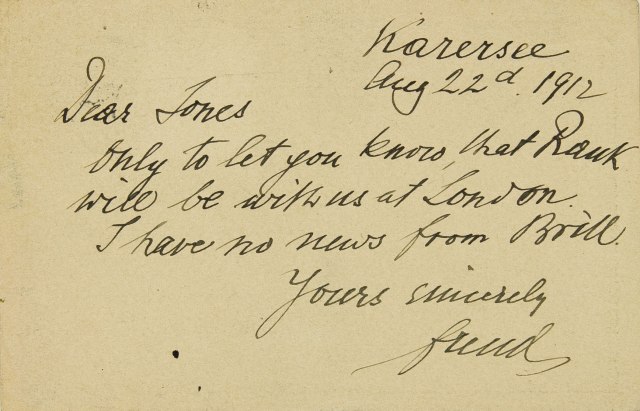 Karersee
Aug 22d. 1912
Dear Jones
Only to let you know, that Rank
will be with us at London.
I have no news from Brill.
Yours sincerely
Freud